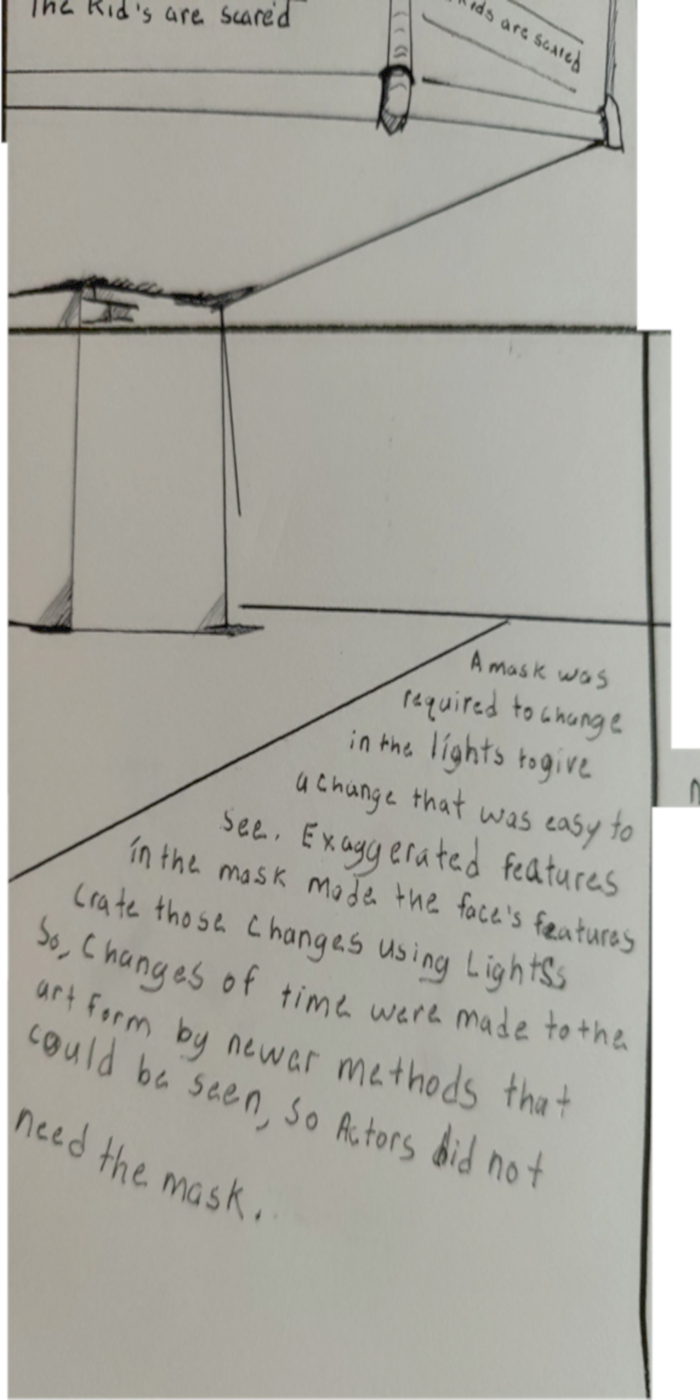 The Kid's are scared
Kids are scared
A mask was
required to change
in the lights to give
a change that was easy to
see. Exaggerated features
in the mask made the face's features
Crate those changes using LightSs
So, Changes of time were made to the
art form by newer methods that
could be seen, so Actors did not
need the mask.